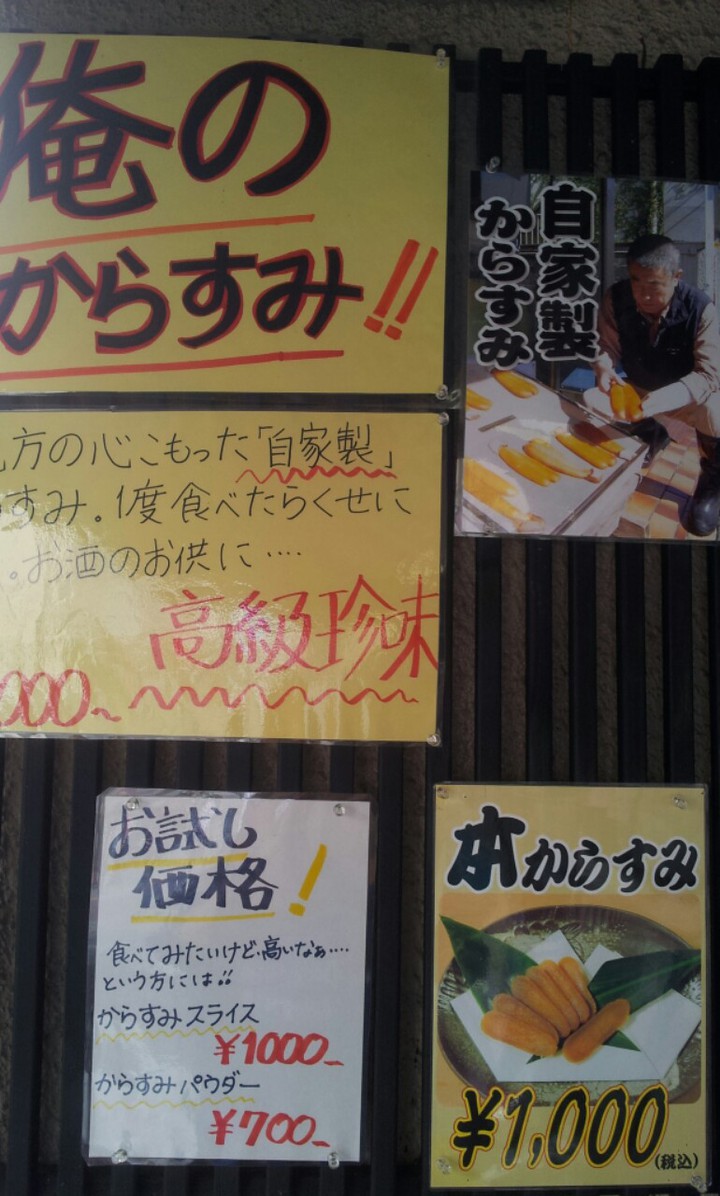 俺の
からすみ!!
自家製
からすみ
方の心こもった「自家製」
すみ。1度食べたらくせに
。お酒のお供に‥‥
高級珍味
000~
お試し
価格!
食べてみたいけど、高いなぁ‥‥
という方には!!
からすみスライス
¥1000-
からすみパウダー
¥700-
本からすみ
¥1,000
(税込)